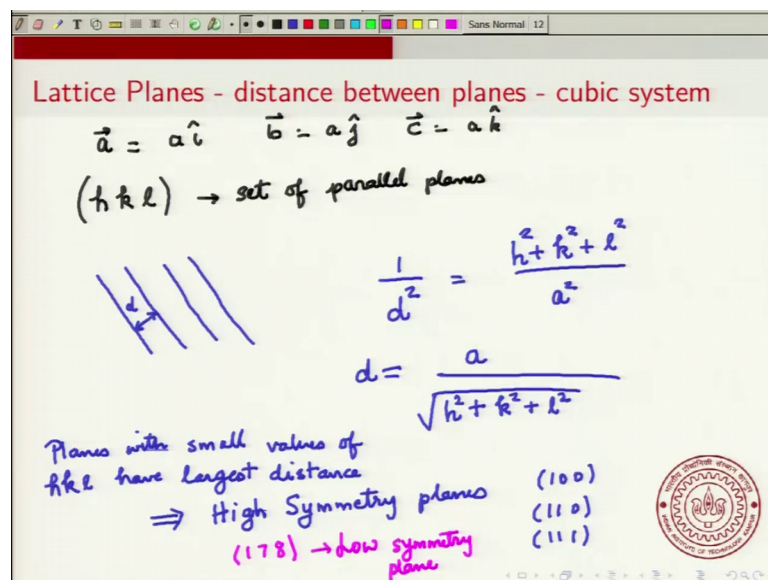 Sans Normal 12
Lattice Planes - distance between planes - cubic system
a⃗ = a î   b⃗ = a ĵ   c⃗ = a k̂
(h k l) → set of parallel planes
d
1/d² = (h² + k² + l²)/a²
d = a/√(h² + k² + l²)
Planes with small values of
hkl have largest distance
⇒ High Symmetry planes
(100)
(110)
(111)
(178) → Low symmetry
plane